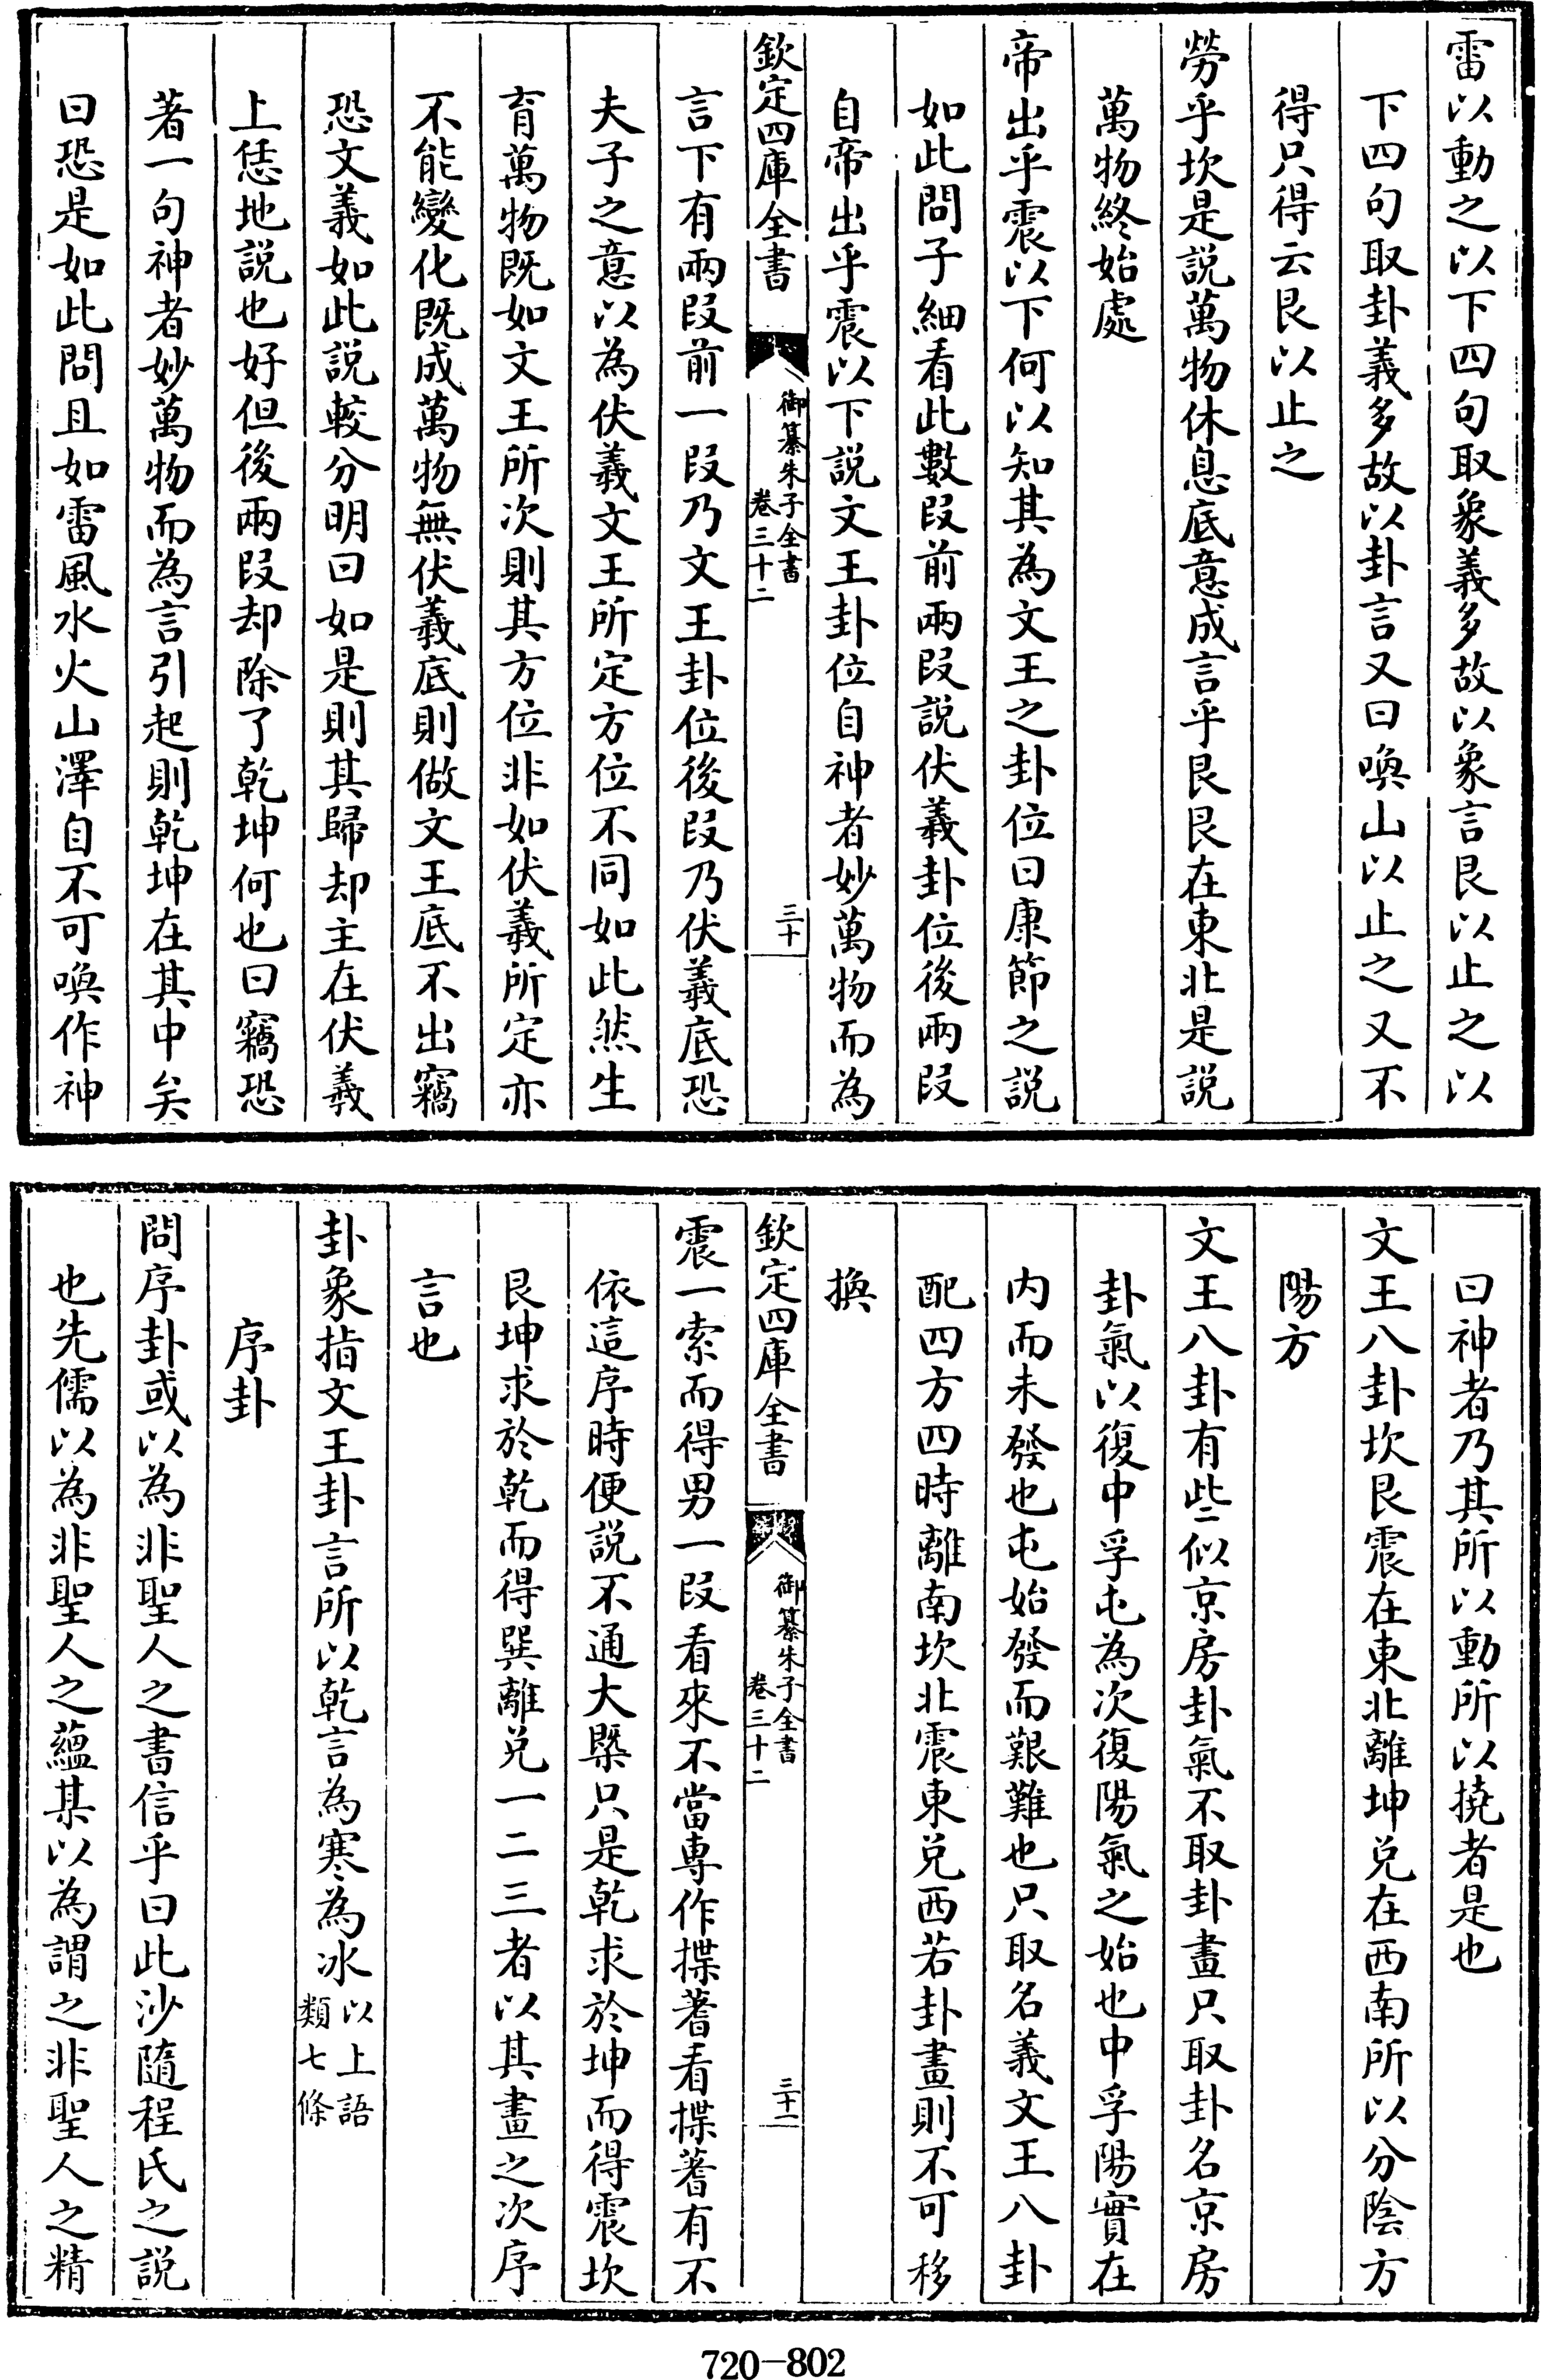 雷以動之以下四句取象義多故以象言艮以止之以
下四句取卦義多故以卦言又曰喚山以止之又不
得只得云艮以止之
勞乎坎是説萬物休息底意成言乎艮艮在東北是説
萬物終始處
帝出乎震以下何以知其為文王之卦位曰康節之説
如此問子細看此數段前兩段説伏羲卦位後兩段
自帝出乎震以下説文王卦位自神者妙萬物而為
欽定四庫全書
御纂朱子全書
卷三十二
三十
言下有兩段前一段乃文王卦位後段乃伏羲底恐
夫子之意以為伏羲文王所定方位不同如此然生
育萬物既如文王所次則其方位非如伏羲所定亦
不能變化既成萬物無伏羲底則做文王底不出竊
恐文義如此説較分明曰如是則其歸却主在伏羲
上恁地説也好但後兩段却除了乾坤何也曰竊恐
著一句神者妙萬物而為言引起則乾坤在其中矣
曰恐是如此問且如雷風水火山澤自不可喚作神
曰神者乃其所以動所以撓者是也
文王八卦坎艮震在東北離坤兑在西南所以分陰方
陽方
文王八卦有些似京房卦氣不取卦畫只取卦名京房
卦氣以復中孚屯為次復陽氣之始也中孚陽實在
内而未發也屯始發而艱難也只取名義文王八卦
配四方四時離南坎北震東兑西若卦畫則不可移
換
欽定四庫全書
御纂朱子全書
卷三十二
三十一
震一索而得男一段看來不當專作揲蓍看揲蓍有不
依這序時便説不通大槩只是乾求於坤而得震坎
艮坤求於乾而得巽離兑一二三者以其畫之次序
言也
卦象指文王卦言所以乾言為寒為冰以上語
類七條
序卦
問序卦或以為非聖人之書信乎曰此沙隨程氏之説
也先儒以為非聖人之蘊某以為謂之非聖人之精
720-802